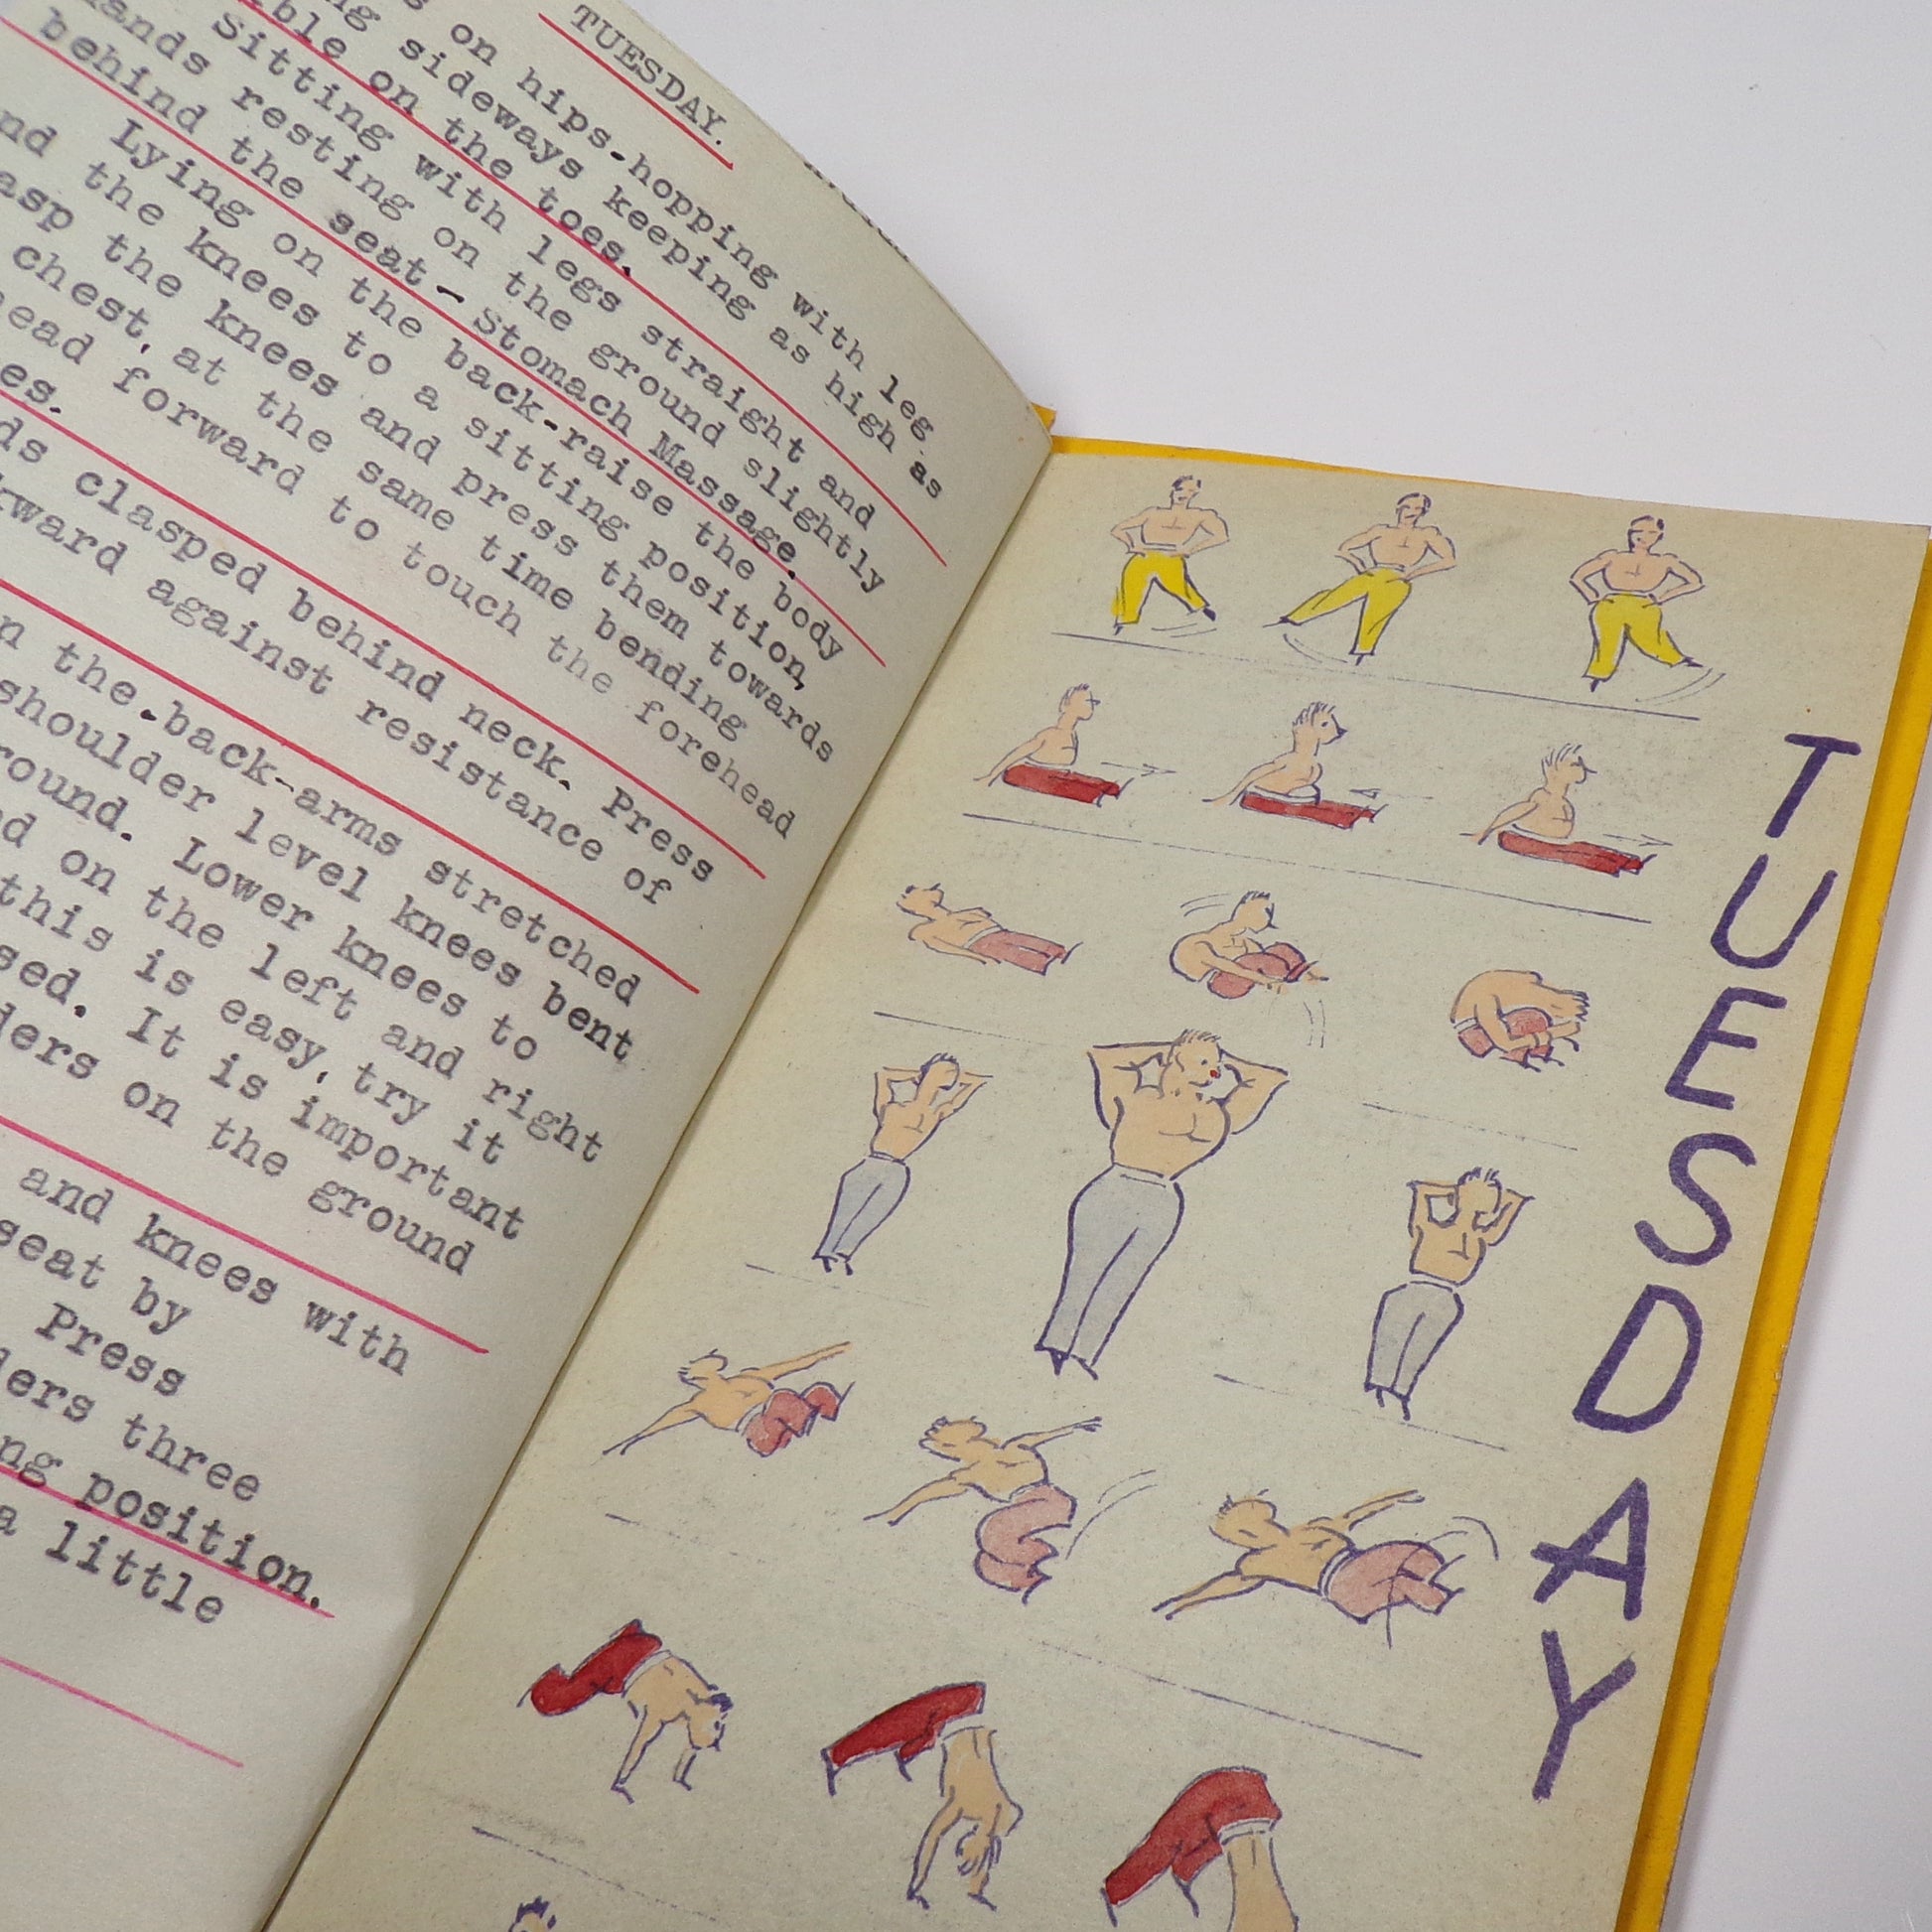 TUESDAY.
on hips-hopping with leg
ng sideways keeping as high as
ble on the toes.
Sitting with legs straight and
ands resting on the ground slightly
behind the seat - Stomach Massage.
Lying on the back-raise the body
nd the knees to a sitting position,
asp the knees and press them towards
chest, at the same time bending
ead forward to touch the forehead
es.
ds clasped behind neck. Press
kward against resistance of
n the back-arms stretched
shoulder level knees bent
round. Lower knees to
d on the left and right
this is easy, try it
sed. It is important
ders on the ground
and knees with
seat by
Press
ders three
ng position.
a little
TUESDAY